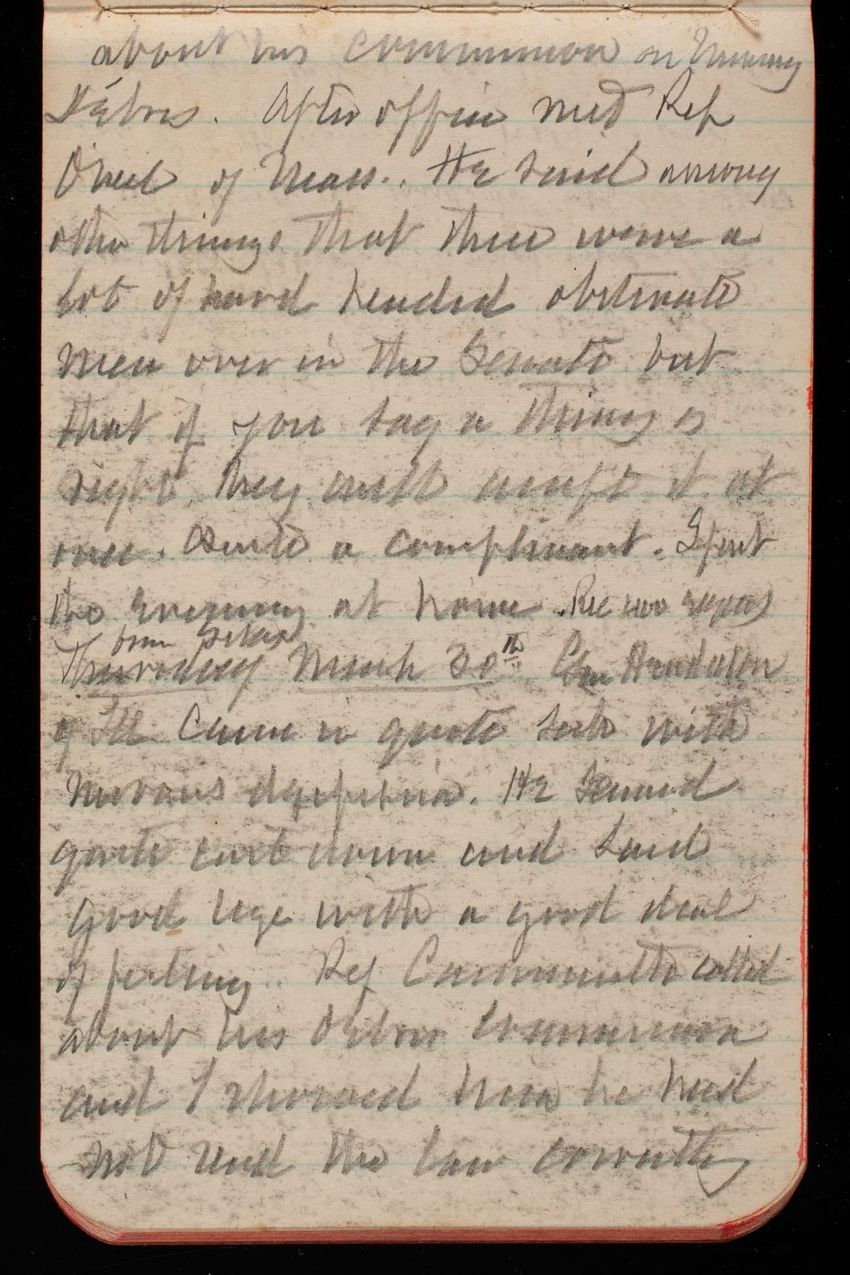 about his commission on Mining
Debris. After office met Rep
O'Neil of Mass. He said among
other things that there were a
lot of hard headed obstinate
men over in the Senate but
that if you say a thing is
right they will accept it at
once. Quite a compliment. Spent
the evening at home. Rec two
from
Thursday March 30th. Gen Henderson
of Ill came in quite sick with
nervous dyspepsia. He seemed
quite cut down and said
good bye with a good deal
of feeling. Rep Caminetti called
about his Debris Commission
and I showed him he had
not read the law correctly